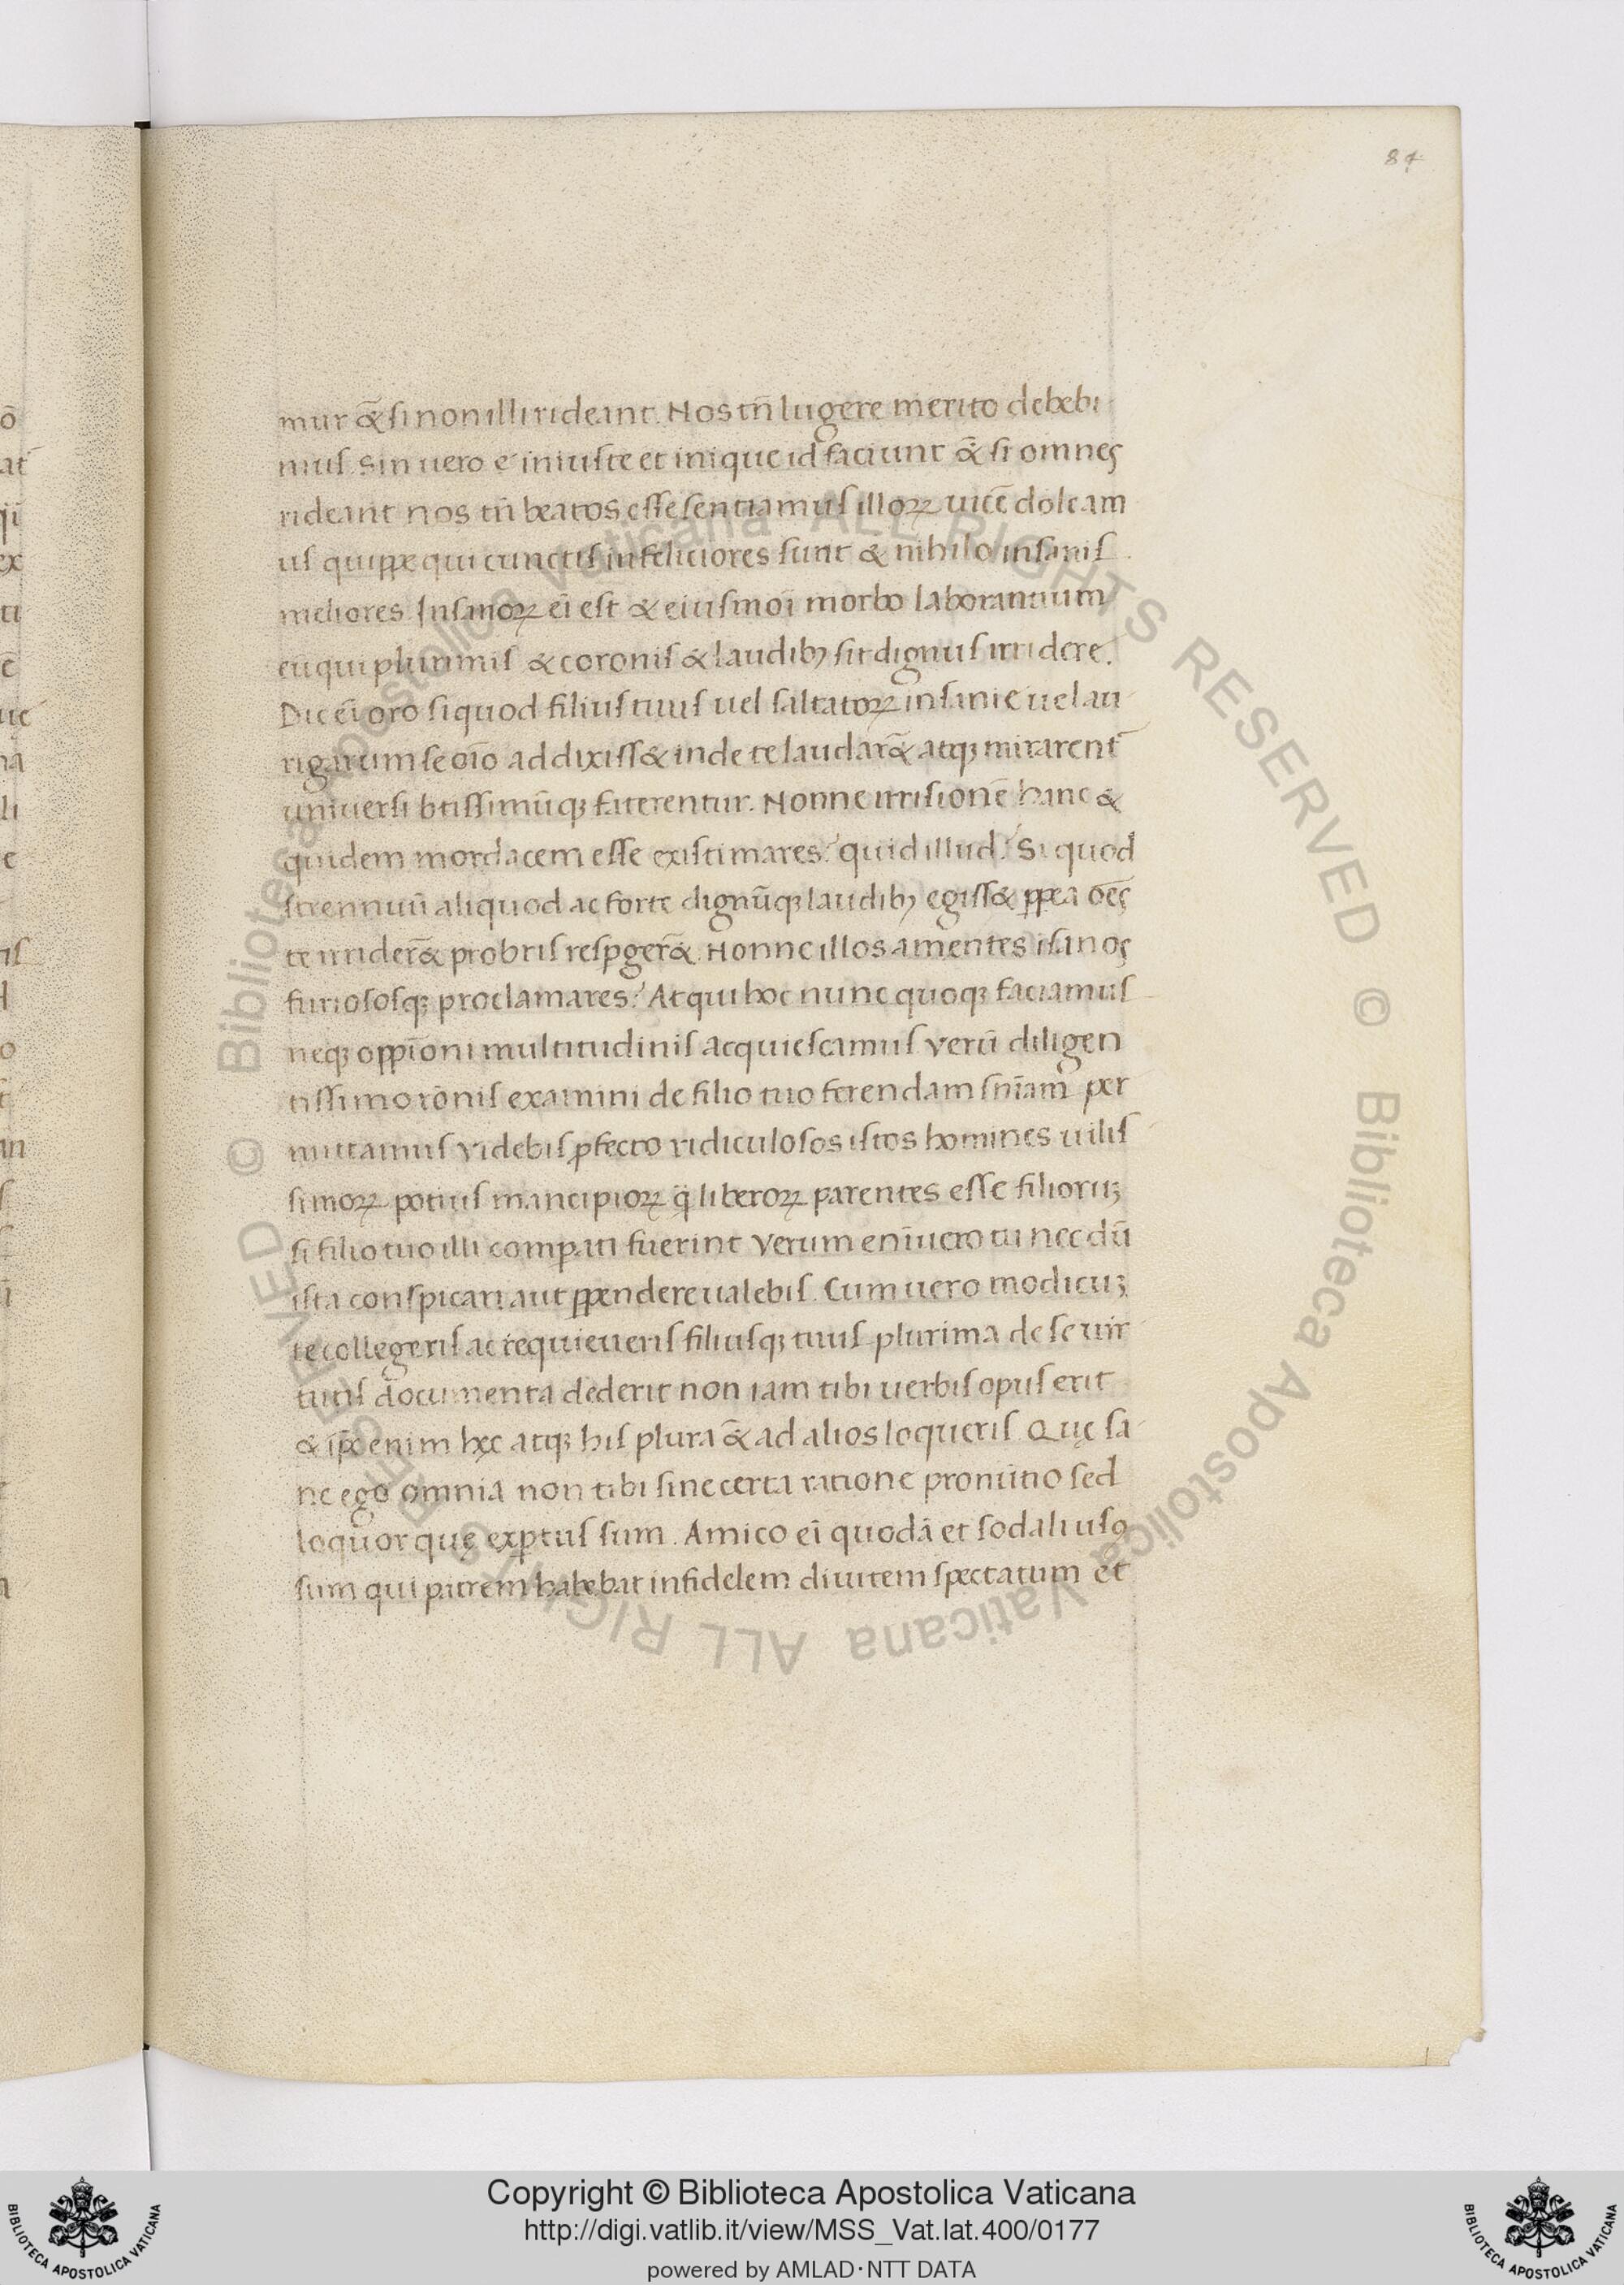 84
mur &̄ si non illi rideant. Nos tn̄ lugere merito debebi
mus. Sin uero e iniuste et inique id faciunt &̄ si omnes
rideant nos tn̄ beatos esse sentiamus illoꝝ uicē doleam
us quippe qui cunctis infeliciores sunt & nihilo insanis
meliores. Insanoꝝ ei̅ est & eiusmoi̅ morbo laborantium
eū qui plurimis & coronis & laudibꝫ sit dignus irridere.
Dic ei̅ oro si quod filius tuus uel saltatoꝝ insanie uel au
rigarum se oi̅o addixiss& inde te laudar&̄ atqꝫ mirarent̄
uniuersi btissimūqꝫ faterentur. Nonne irrisionē hanc &
quidem mordacem esse existimares? quid illud? Si quod
strennuū aliquod ac forte dignūqꝫ laudibꝫ egiss& ꝓpea oēs
te irrider&̄ probris respger&̄. Nonne illos amentes isanos
furiososqꝫ proclamares? Atqui hoc nunc quoqꝫ faciamus
neqꝫ oppi̅oni multitudinis acquiescamus Verū diligen
tissimo rōnis examini de filio tuo ferendam sn̄iam per
mittamus Videbis ꝓfecto ridiculosos istos homines uilis
simoꝝ potius mancipioꝝ q̄ liberoꝝ parentes esse filioruꝫ
si filio tuo illi compati fuerint Verum eni̅uero tu nec dū
ista conspicari aut ꝑpendere ualebis. Cum uero modicuꝫ
te collegeris ac requieueris filiusqꝫ tuus plurima de se uir
tutis documenta dederit non iam tibi uerbis opus erit
& ip̄e enim hęc atqꝫ his plura &̄ ad alios loqueris Quę sa
ne ego omnia non tibi sine certa ratione pronūtio sed
loquor quę exꝑtus sum. Amico ei̅ quodā et sodali usꝰ
sum qui patrem habebat infidelem diuitem spectatum et
Copyright © Biblioteca Apostolica Vaticana
http://digi.vatlib.it/view/MSS_Vat.lat.400/0177
powered by AMLAD·NTT DATA
BIBLIOTECA APOSTOLICA VATICANA
BIBLIOTECA APOSTOLICA VATICANA
© Biblioteca Apostolica Vaticana ALL RIGHTS RESERVED © Biblioteca Apostolica Vaticana ALL RIGHTS RESERVED